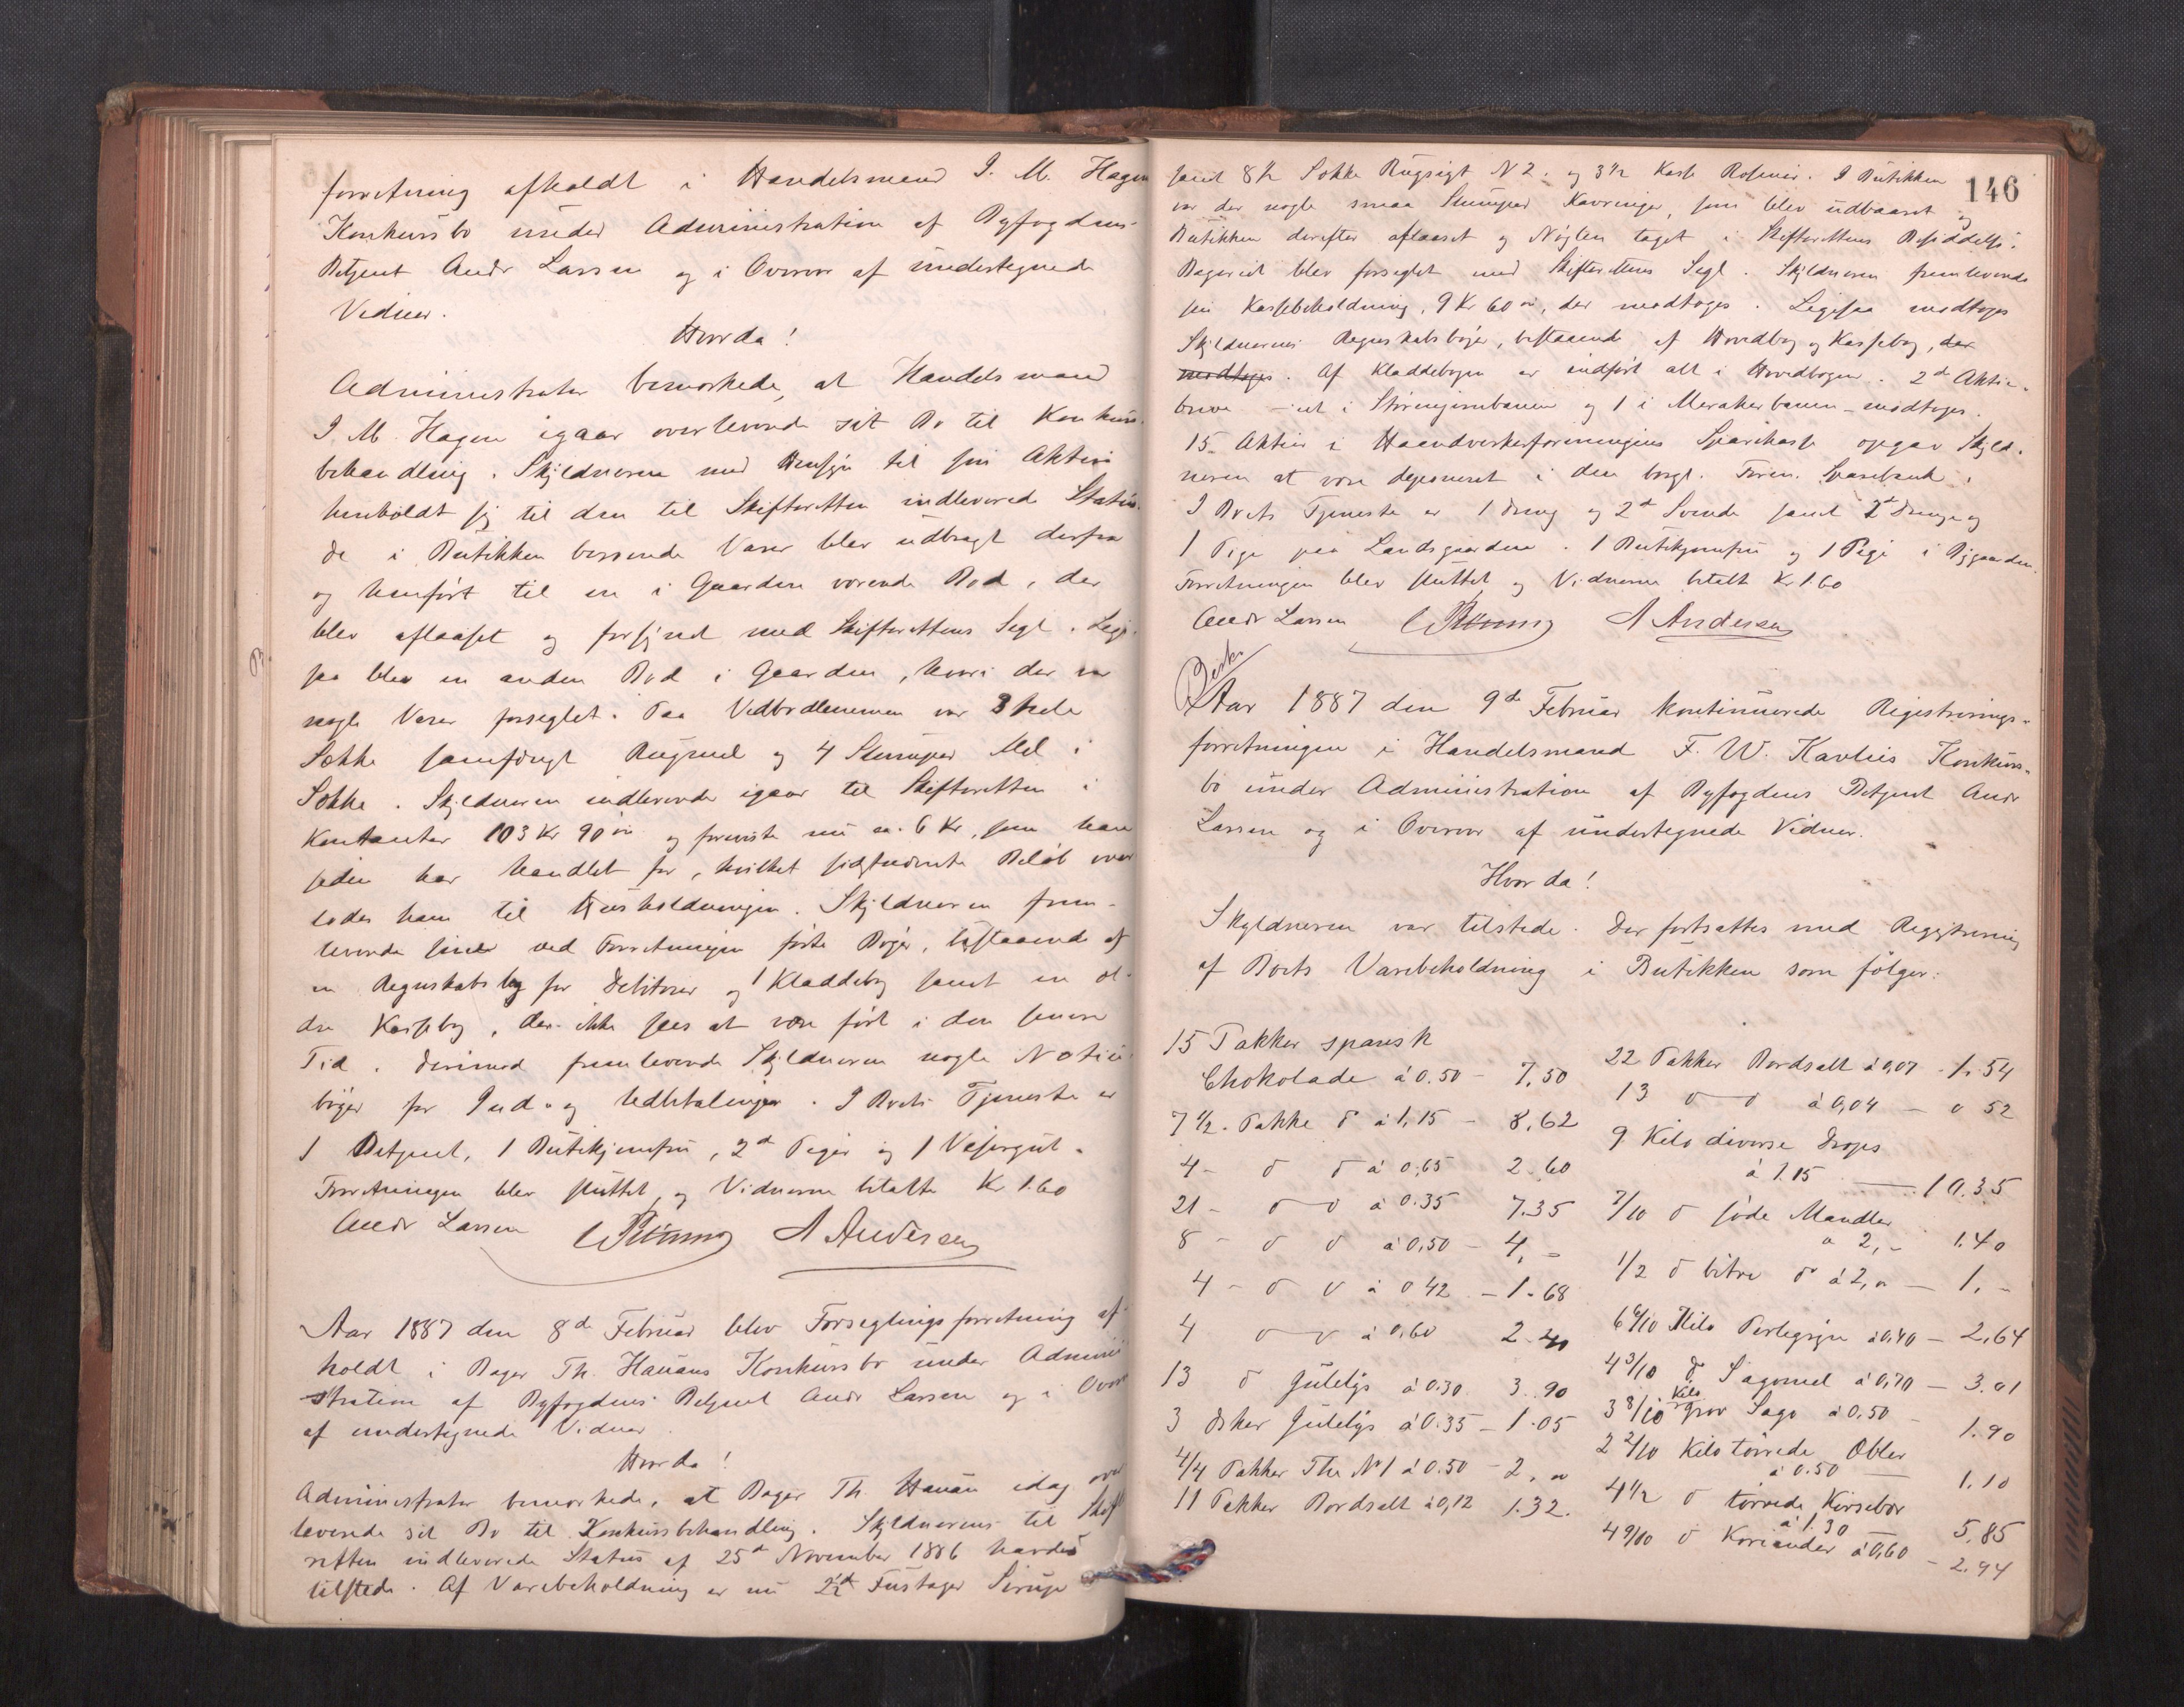 forretning afholdt i Handelsmand I. M. Hagen
Konkursbo under Administration af Byfogdens
Betjent Andr Larsen og i Overvær af undertegnede
Vidner.
Hvorda!
Administrator bemærkede, at Handelsmand
I. M. Hagen igaar overleverede sit Bo til Konkurs-
behandling. Skyldneren med Hensyn til sin Aktiva
henholdt sig til den til Skifteretten indleverede Status.
De i Butikken beroende Varer blev udbragt derfra
og henført til en i Gaarden værende Bod, der
blev aflaaset og forsynet med Skifterettens Segl. Lige-
saa blev en anden Bod i Gaarden, hvori der var
nogle Varer forseglet. Paa Vedbodlemmen var 3 hele
Sække Rugmel og 4 Slumper Mel i
Sække. Skyldneren indleverede igaar til Skifteretten i
Kontanter 103 Kr 90 ør og foreviste nu ca. 6 Kr, som han
siden har handlet for, hvilket sidstnævnte Beløb over
lodes ham til Husholdningen. Skyldneren frem-
leverede sine ved Forretningen førte Bøger, bestaaende af
en Regnskabsbog for Debitorer og 1 Kladdebog samt en æl-
dre Kassebog, der ikke sees at være ført i den senere
Tid. Derimod fremleverede Skyldneren nogle Notis-
bøger for Ind- og Udbetalinger. I Boets Tjeneste er
1 Betjent, 1 Butikjomfru, 2d Piger og 1 Visergut.
Forretningen blev sluttet, og Vidnerne betalte Kr 1.60
Andr Larsen A Andersen
Aar 1887 den 8d Februar blev Forseglingsforretning af-
holdt i Bager Th. Hauans Konkursbo under Admini
stration af Byfogdens Betjent Andr Larsen og i Overv
af undertegnede Vidner.
Hvorda!
Administrator bemærkede, at Bager Th. Hauan idag over
leverede sit Bo til Konkursbehandling. Skyldnerens til Skif
retten indleverede Status af 25d November 1886 havdes
tilstede. Af Varebeholdning er nu 2d Fustager Sirup
146
samt 8½ Sække Rugsigt N 2. og 3½ Kasse Rosiner. I Butikken
var der nogle smaa Slumper Kavringer, som blev udbaaret og
Butikken derefter aflaaset og Nøglen taget i Skifterettens Besiddelse.
Bageriet blev forseglet med Skifterettens Segl. Skyldneren fremleverede
sin Kassebeholdning, 9 Kr 60 ør, der modtoges. Ligesaa modtoges
Skyldnerens Regnskabsbøger, bestaaende af Hovedbog og Kassebog, der
modtoges. Af Kladdebogen er indført alt i Hovedbogen. 2d Aktie-
breve – et i Størenjernbanen og 1 i Merakerbanen – modtoges.
15 Aktier i Haandverkerforeningens Sparekasse opgav Skyld-
neren at være deponeret i den borgl. Foren. Sparebank.
I Boets Tjeneste er 1 Dreng og 2d Svende samt 2d Drenge og
1 Pige paa Landsgaarden. 1 Butikjomfru og 1 Pige i Bygaarden.
Forretningen blev sluttet, og Vidnerne betalt Kr 1.60
Andr Larsen A Andersen
Aar 1887 den 9d Februar kontinuerede Registrerings-
forretningen i Handelsmand F. W. Kavlis Konkurs-
bo under Administration af Byfogdens Betjent Andr
Larsen og i Overvær af undertegnede Vidner.
Hvorda!
Skyldneren var tilstede. Der fortsattes med Registrering
af Boets Varebeholdning i Butikken som følger:
15 Pakker spansk
Chokolade à 0.50 – 7,50
7½. Pakke d à 1,15 – 8,62
4 – d d à 0,65 2.60
21 – d d à 0.35 7.35
8 – d d à 0,50 – 4,–
4 – d d à 0 42 – 1.68
4 d d à 0,60 2.40
13 d Julelys à 0.30 3.90
3 Esker Julelys à 0.35 – 1.05
4/4 Pakker The N 1 à 0.50 – 2,00
11 Pakker Bordsalt à 0,12 1.32.
22 Pakker Bordsalt à 0,07 – 1.54
13 d d à 0,04 – 0 52
9 Kilo diverse Drops
à 1.15 — 10.35
7/10 d søde Mandler
à 2,– 1.40
1/2 d bitre d à 2,00 – 1.–
6 6/10 Kilo Perlegryn à 0,40 – 2,64
4 3/10 d Sagomel à 0,70 – 3.01
3 8/10 Kilo grov Sago à 0.50 – 1.90
2 2/10 Kilo tørrede Æbler
à 0.50 — 1.10
4½ d tørrede Kirsebær
à 1.30 — 5,85
4 9/10 d Koriander à 0,60 – 2.94